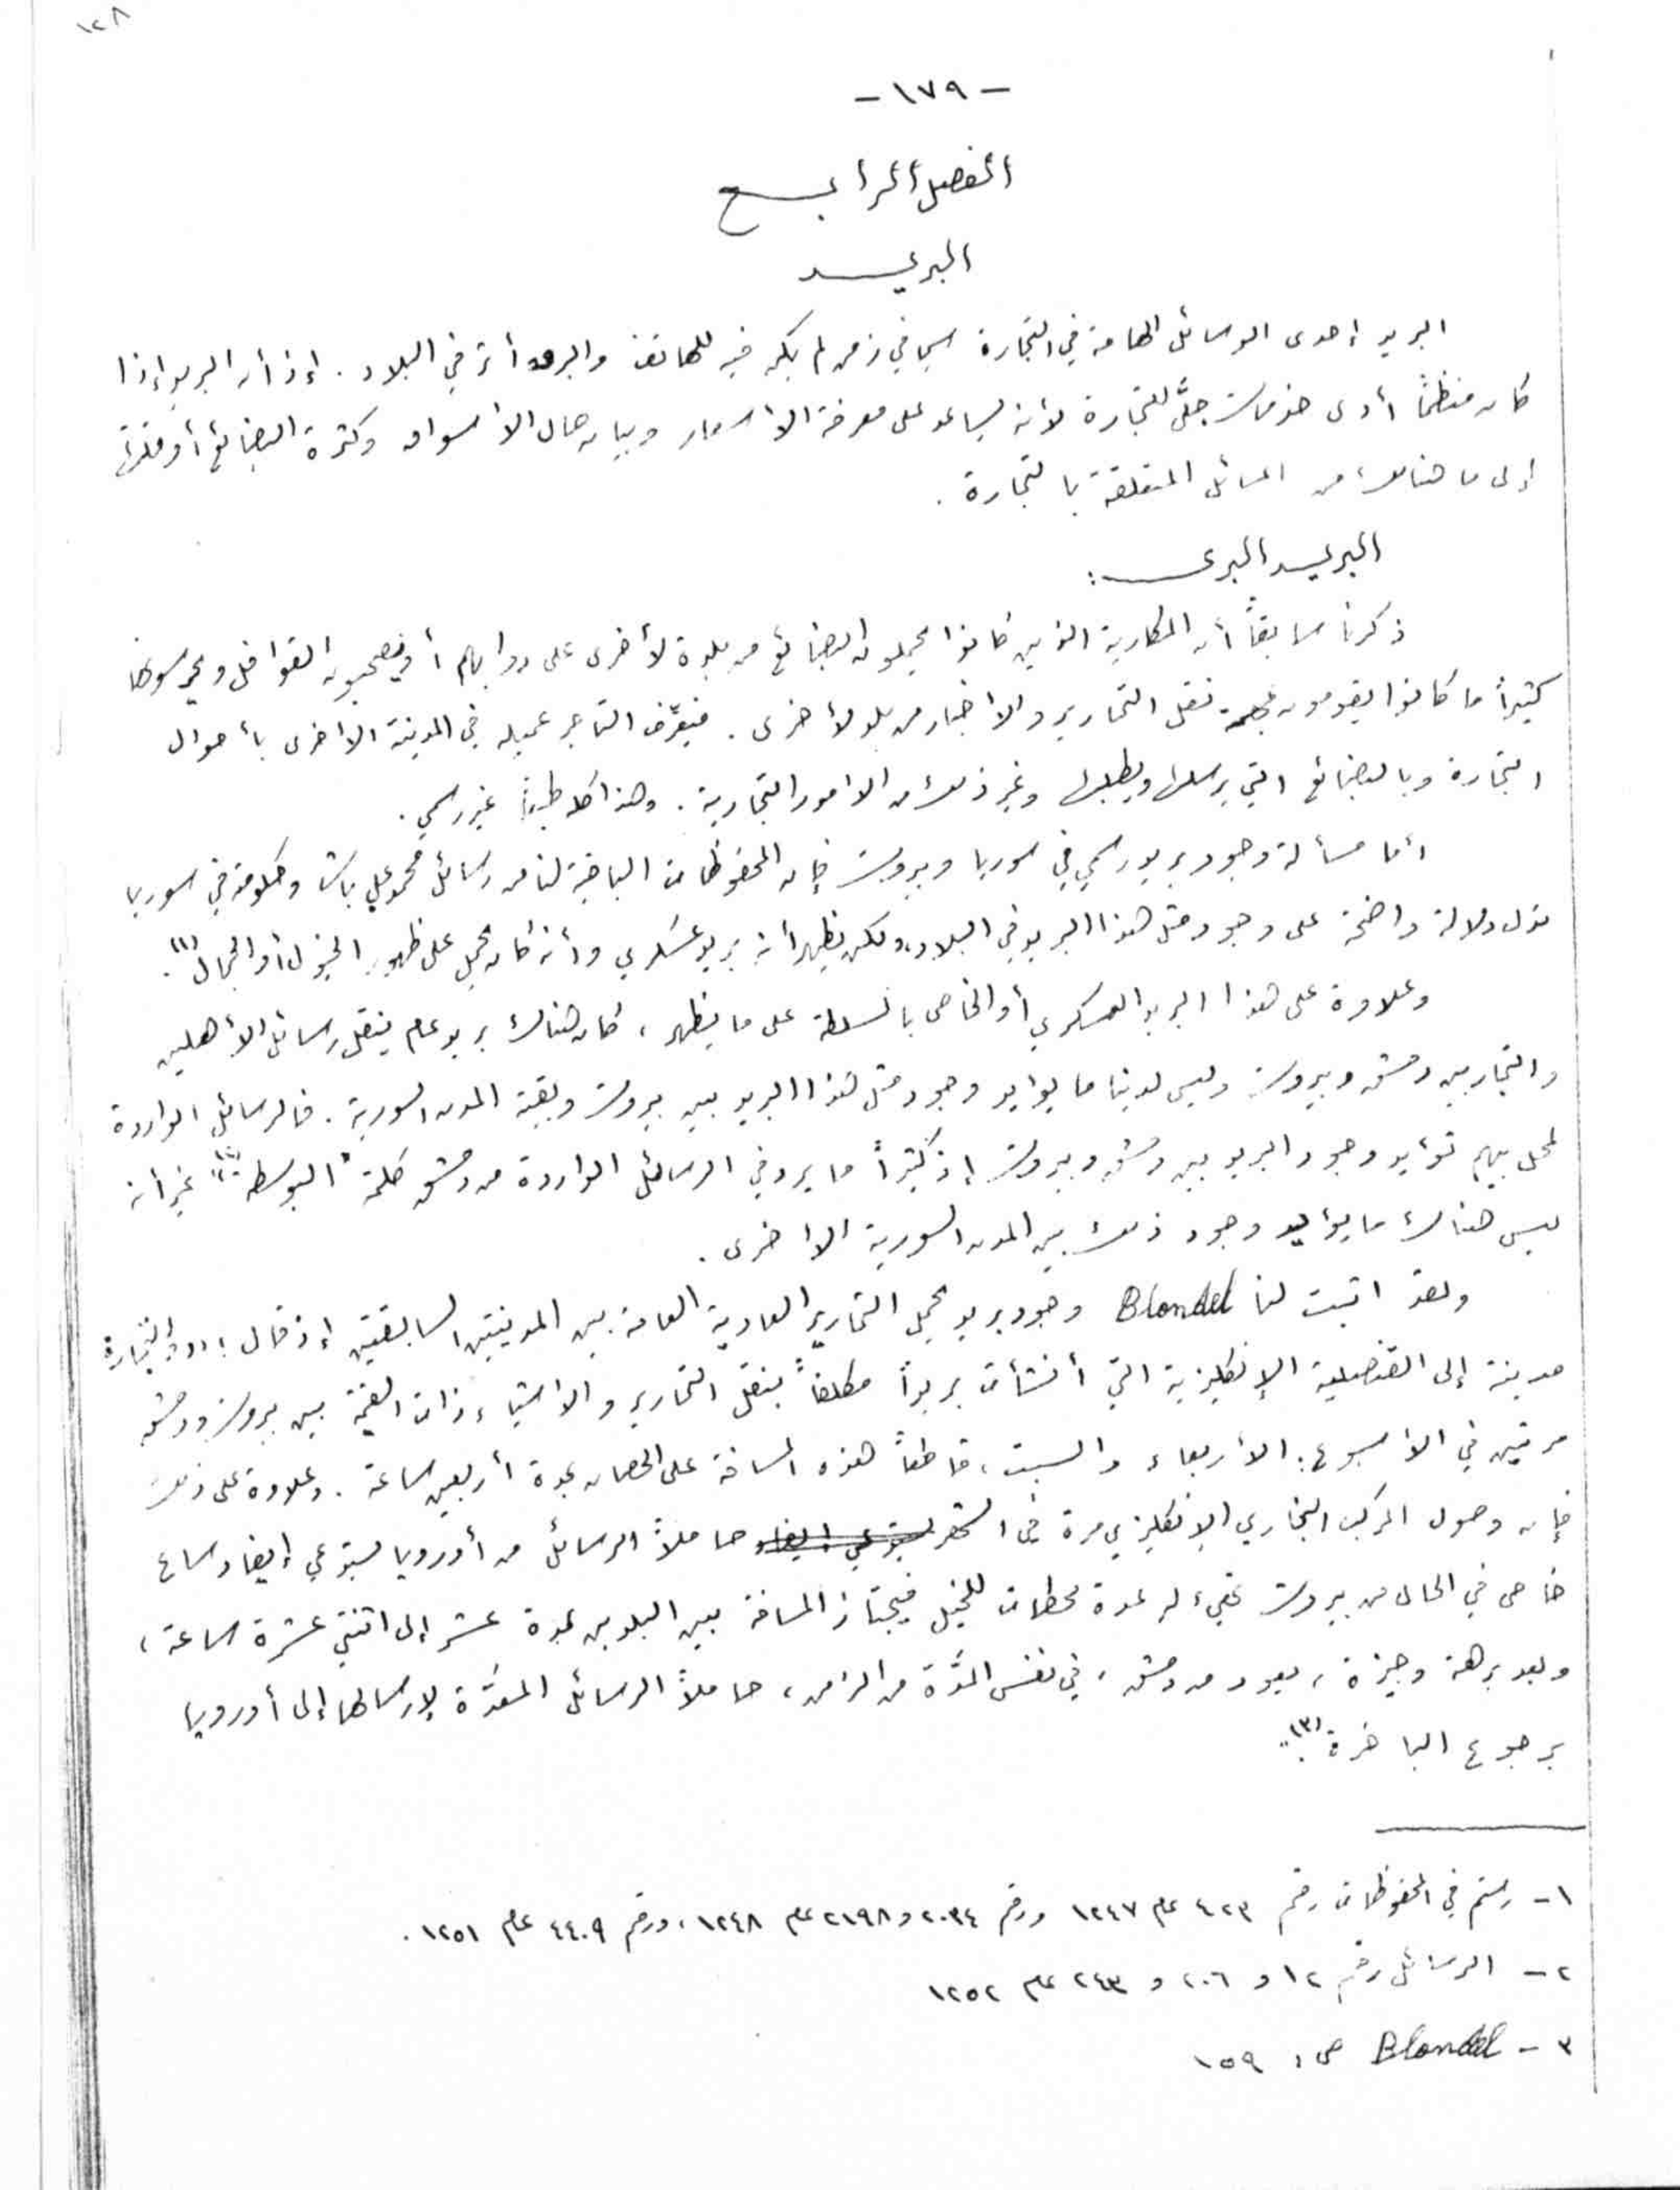 ١٢٨
- ١٧٩ -
الفصل الرابع
البريد
البريد إحدى الوسائل الهامة في التجارة سيما في زمن لم يكن فيه للهاتف والبرق أثر في البلاد . إذ أن البريد إذا
كان منظماً أدى خدمات جلَّى للتجارة لأنه يساعد على معرفة الأسعار وبيان حال الأسواق وكثرة البضائع أو قلتها
إلى ما هنالك من المسائل المتعلقة بالتجارة .
البريد البري :
ذكرنا سابقاً أن المكارية الذين كانوا يحملون البضائع من بلدة لأخرى على دوابهم أو يصحبون القوافل ويحرسونها
كثيراً ما كانوا يقومون بمهمة نقل التحارير والأخبار من بلد لأخرى . فيعرّف التاجر عميله في المدينة الأخرى بأحوال
التجارة وبالبضائع التي يرسلها ويطلبها وغير ذلك من الأمور التجارية . وهذا كله طبعاً غير رسمي .
أما مسألة وجود بريد رسمي في سوريا وبيروت فإن المحفوظات الباقية لنا من رسائل محمد علي باشا وحكومته في سوريا
تدل دلالة واضحة على وجود مثل هذا البريد في البلاد، ولكن يظهر أنه بريد عسكري وأنه كان يحمل على ظهور الخيول أو الجمال (١) .
وعلاوة على هذا البريد العسكري أو الخاص بالسلطة على ما يظهر ، كان هناك بريد عام ينقل رسائل الأهلين
والتجار بين دمشق وبيروت وليس لدينا ما يؤايد وجود مثل هذا البريد بين بيروت وبقية المدن السورية . فالرسائل الواردة
لمحل بيهم تؤايد وجود البريد بين دمشق وبيروت إذ كثيراً ما يرد في الرسائل الواردة من دمشق كلمة "البوسطة" (٢) غير أنه
ليس هناك ما يؤايد وجود ذلك بين المدن السورية الأخرى .
ولقد اثبت لنا Blondel وجود بريد يحمل التحارير العادية العامة بين المدينتين السابقتين إذ قال : "والتجارة
مدينة إلى القنصلية الإنكليزية التي أنشأت بريداً مكلفاً بنقل التحارير والأشياء ذات القيمة بين بيروت ودمشق
مرتين في الأسبوع : الأربعاء والسبت ، قاطعاً هذه المسافة على الحصان بمدة أربعين ساعة . وعلاوة على ذلك
فإن وصول المركب البخاري الإنكليزي مرة في الشهر حاملاً الرسائل من أوروبا يستوعي إيفاد ساع
خاص في الحال من بيروت تهيء له عدة محطات للخيل فيجتاز المسافة بين البلدين بمدة عشر إلى اثنتي عشرة ساعة ،
وبعد برهة وجيزة ، يعود من دمشق ، في نفس المدّة من الزمن ، حاملاً الرسائل المعدّة لإرسالها إلى أوروبا
برجوع الباخرة (٣) ".
١ - رستم في المحفوظات رقم ٤٢٣ عام ١٢٤٧ ورقم ٢٠٣٤ و ٢١٩٨ عام ١٢٤٨ ، ورقم ٤٤٠٩ عام ١٢٥١ .
٢ - الرسائل رقم ١٢ و ٢٠٦ و ٢٤٣ عام ١٢٥٢
٣ - Blondel ص : ١٥٩